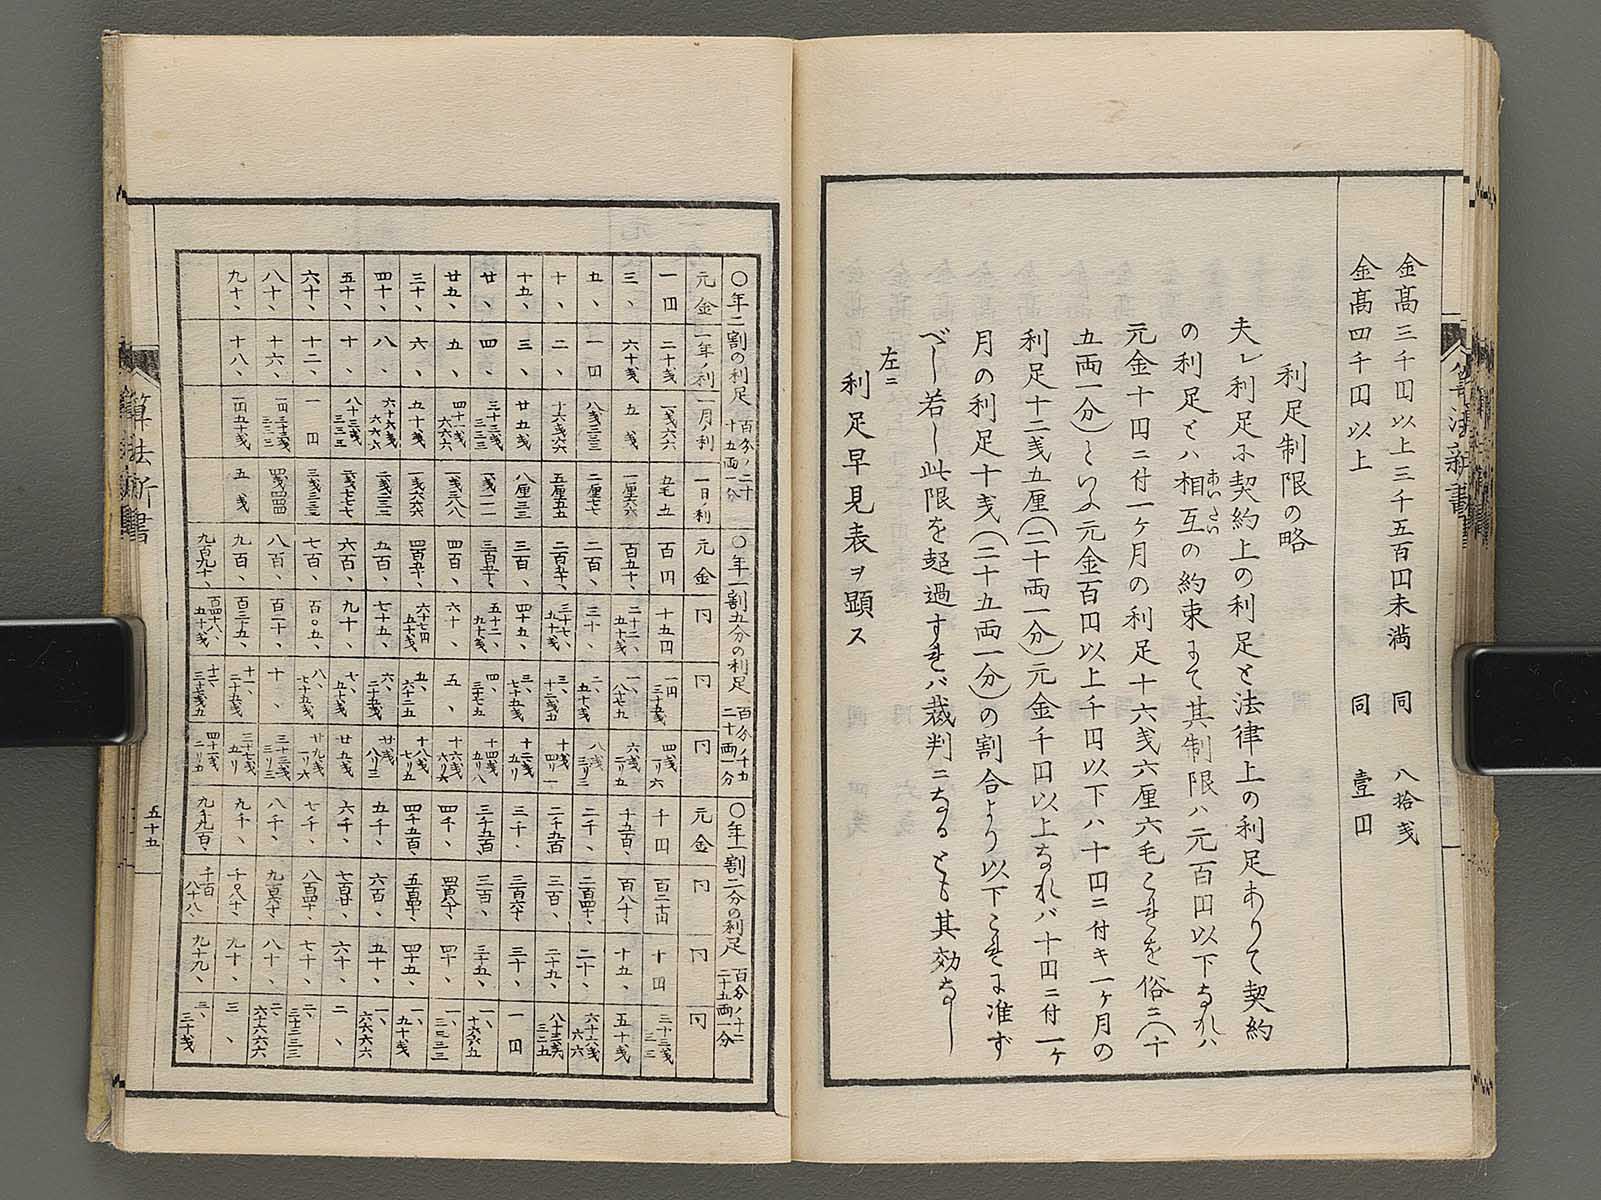 金高三千円以上三千五百円未満 同 八拾戋
金高四千円以上 同 壹円
利足制限の略
夫レ利足ニ契約上の利足と法律上の利足ありて契約
の利足とハ相互の約束にて其制限ハ元百円以下なれハ
あいたい
元金十円ニ付一ヶ月の利足十六戋六厘六毛これを俗ニ(十
五両一分)といふ元金百円以上千円以下ハ十円ニ付キ一ヶ月の
利足十二戋五厘(二十両一分)元金千円以上なれバ十円ニ付一ヶ
月の利足十戋(二十五両一分)の割合より以下これに准ず
べし若し此限を超過すれバ裁判ニなるとも其効なし
左ニ
利足早見表ヲ顕ス
算法新書
〇年二割の利足 百分ノ二十 十五両一分
〇年一割五分の利足 百分ノ十五 二十両一分
〇年一割二分の利足 百分ノ十二 二十五両一分
元金 一年ノ利 一月ノ利 一日ノ利 元金 円 円 円 元金 円 円 円
一円 二十戋 一戋六六 五毛五 百円 十五円 一円二十五戋 四戋一リ六 千円 百二十円 十円 三十三戋三三
三、 六十戋 五戋 一厘六六 百五十、 二十二、五十戋 一、八七五 六戋二リ五 千五百、 百八十、 十五、 五十戋
五、 一円 八戋三三 二厘七七 二百、 三十、 二、五十戋 八戋三リ三 二千、 二百四十、 二十、 六十六戋六六
十、 二、 十六戋六六 五厘五五 二百五十、 三十七、五十戋 三、十二戋五 十戋四リ一 二千五百、 三百、 二十五、 八十三戋三三
十五、 三、 廿五戋 八厘三三 三百、 四十五、 三、七十五戋 十二戋五リ 三千、 三百六十、 三十、 一円
廿、 四、 三十三戋三三 一戋一一 三百五十、 五十二、五十戋 四、三十七五 十四戋五リ八 三千五百、
廿五、 五、 四十一戋六六六 一戋三八八 四百、 六十、 五、 十六戋六リ六 四千、 四百八十、 四十、 一、三三三三
三十、 六、 五十戋 一戋六六六 四百五十、 六十七円五十戋 五、六十二五 十八戋七リ五 四千五百、 五百四十、 四十五、
四十、 八、 六十六戋六六六 五百、 七十五、 六、二十五戋 廿戋八リ三 五千、 六百、 五十、 一、六六六六
五十、 十、 八十三戋三三三 二戋七七七 六百、 九十、 七、五十戋 廿五戋 六千、 七百廿、 六十、 二、
六十、 十二、 一円 三戋三三三 七百、 百〇五、 八、七十五戋 廿九戋一リ六 七千、 八百四十、 七十、 二、三十三三三
八十、 十六、 一円三十三戋三三三 四戋四四四 八百、 百二十、 十、 三十三戋三リ三 八千、 九百六十、 八十、 二、六十六六六
九十、 十八、 一円五十戋 五戋 九百、 百三十五、 十一、二十五戋 三十七戋五リ 九千、 千〇八十、 九十、 三、
九百九十、 百四十八、五十戋 十二、三十七戋五 四十一戋二リ五 九千九百、 千百八十八、 九十九、 三、三十戋
算法新書
五十五